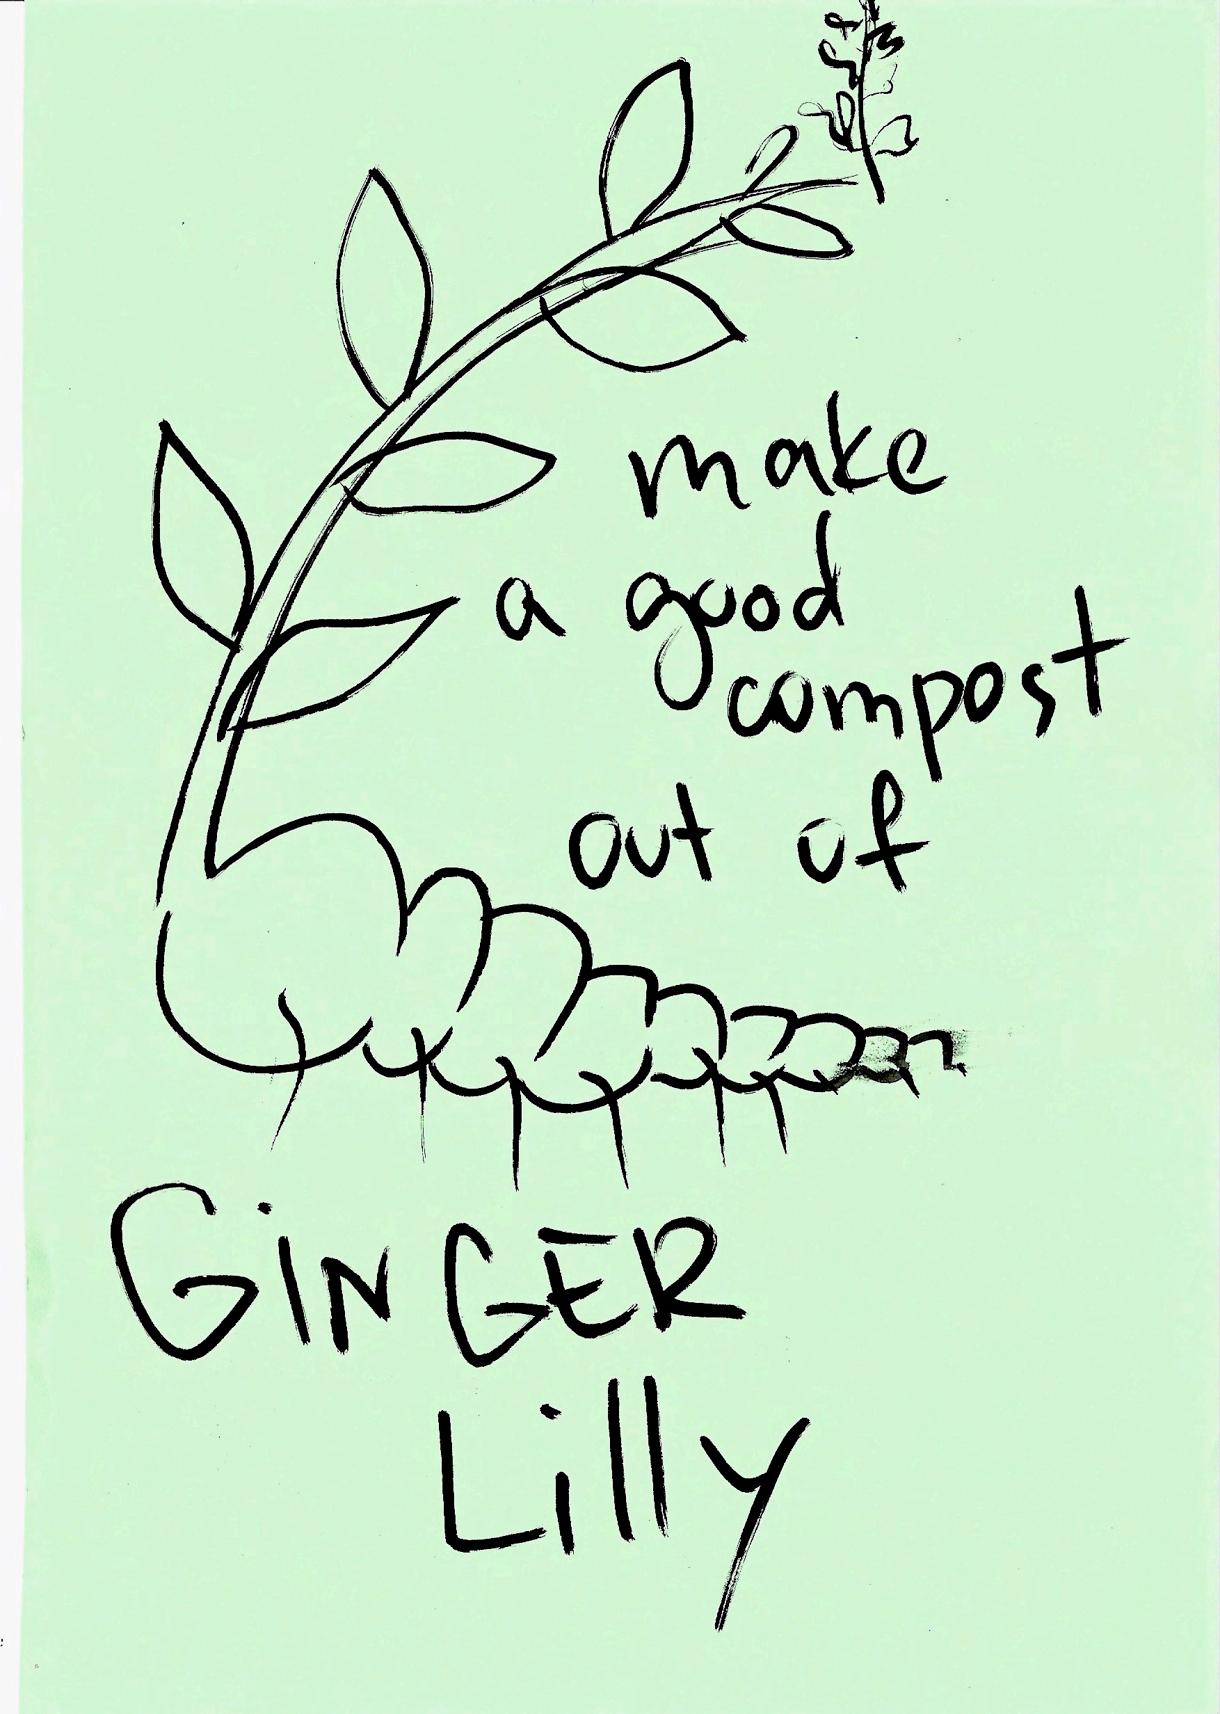 make
a good
compost
out of
GiNGER
Lilly